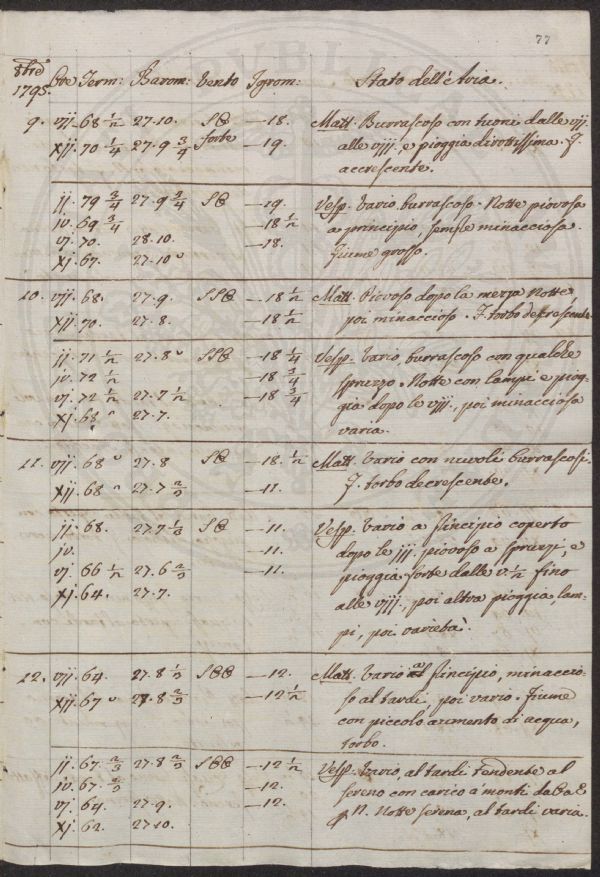 77
8bre Ore Term: Barom: Vento Igrom: Stato dell'Aria.
1798.
9. vij. 68 1/2 27.10. SE —18. Matt. Burrascoso con tuoni dalle vij.
xij. 70 1/4 27.9 3/4 forte —19. alle viij, e pioggia dirottissima. F.
accrescente.
ij. 79 3/4 27.9 3/4 SE —19. Vesp. Vario, burrascoso. Notte piovosa
iv. 69 3/4 —18 1/2 a principio, sempre minacciosa.
vj. 70. 28.10. —18. Fiume grosso.
xj. 67. 27.10
10. vij. 68. 27.9. SSE —18 1/2 Matt. Piovoso dopo la mezza Notte,
xij. 70. 27.8. —18 1/2 poi minaccioso. F. torbo decrescente.
ij. 71 1/2 27.8 SSE —18 1/4 Vesp. Vario, burrascoso con qualche
iv. 72 1/2 —18 3/4 spruzzo. Notte con lampi e piog-
vj. 72 1/2 27.7 1/2 —18 3/4 gia dopo le viij., poi minacciosa
xj. 68 27.7. varia.
11. vij. 68 27.8 SE —18. 1/2 Matt. Vario con nuvoli burrascosi.
xij. 68 27.7 2/3 —11. F. torbo decrescente.
ij. 68. 27.7 1/3 SE —11. Vesp. Vario a principio coperto
iv. —11. dopo le iij. piovoso a spruzzi, e
vj. 66 1/2 27.6 2/3 —11. pioggia forte dalle v. 1/2 fino
xj. 64. 27.7. alle viij., poi altra pioggia, lam-
pi, poi varietà.
12. vij. 64. 27.8 1/3 SEE —12. Matt. Vario a principio, minaccio-
xij. 67 27.8 2/3 —12 1/2 so al tardi, poi vario. Fiume
con piccolo aumento di acqua,
torbo.
ij. 67. 2/3 27.8 2/3 SEE —12 1/2 Vesp. Vario, al tardi tendente al
iv. 67. 2/3 —12. sereno con carico a' monti da E a
vj. 64. 27.9. —12. N. Notte serena, al tardi varia.
xj. 62. 27.10.